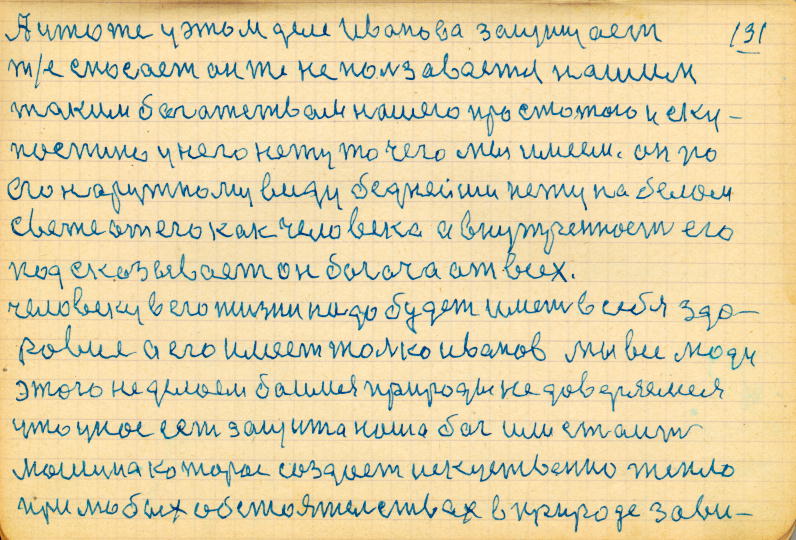 А что же у этом деле Иванова защищает 131
т/е спосает он же не ползаваетя нашим
таким богатетвам нашего простотою и ску-
постино у него нету то чего мы имеем. он по
его наружному виду беднейши нету на белом
свете от его как человека а внутренност его
подсказывает он богача от всех.
человеку в его жизни надо будет имет в себя здо-
ровие а его имеет толко иванов мы вие люди
этого не делаем баимея природы не доверяемся
што у нас ест защита наша бог или стаит
машина которое создает искуственно тепло
при любых обстоятелствах в природе зави-